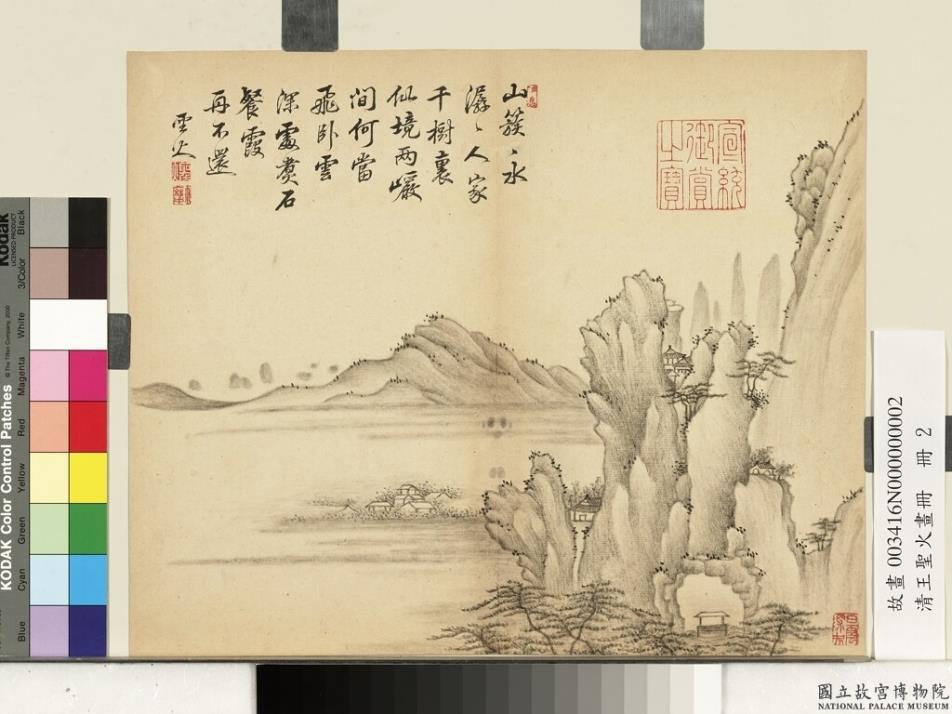 山簇〻水
潺〻人家
千樹裏
仙境兩巖
間何當
飛卧雲
深處煑石
餐霞
再不還
聖火
宣統
御賞
之寶
故畫 003416N000000002
清王聖火畫冊 冊 2
KODAK Color Control Patches
© The Tiffen Company, 2000
Kodak
LICENSED PRODUCT
Blue
Cyan
Green
Yellow
Red
Magenta
White
3/Color
Black
國立故宮博物院
NATIONAL PALACE MUSEUM